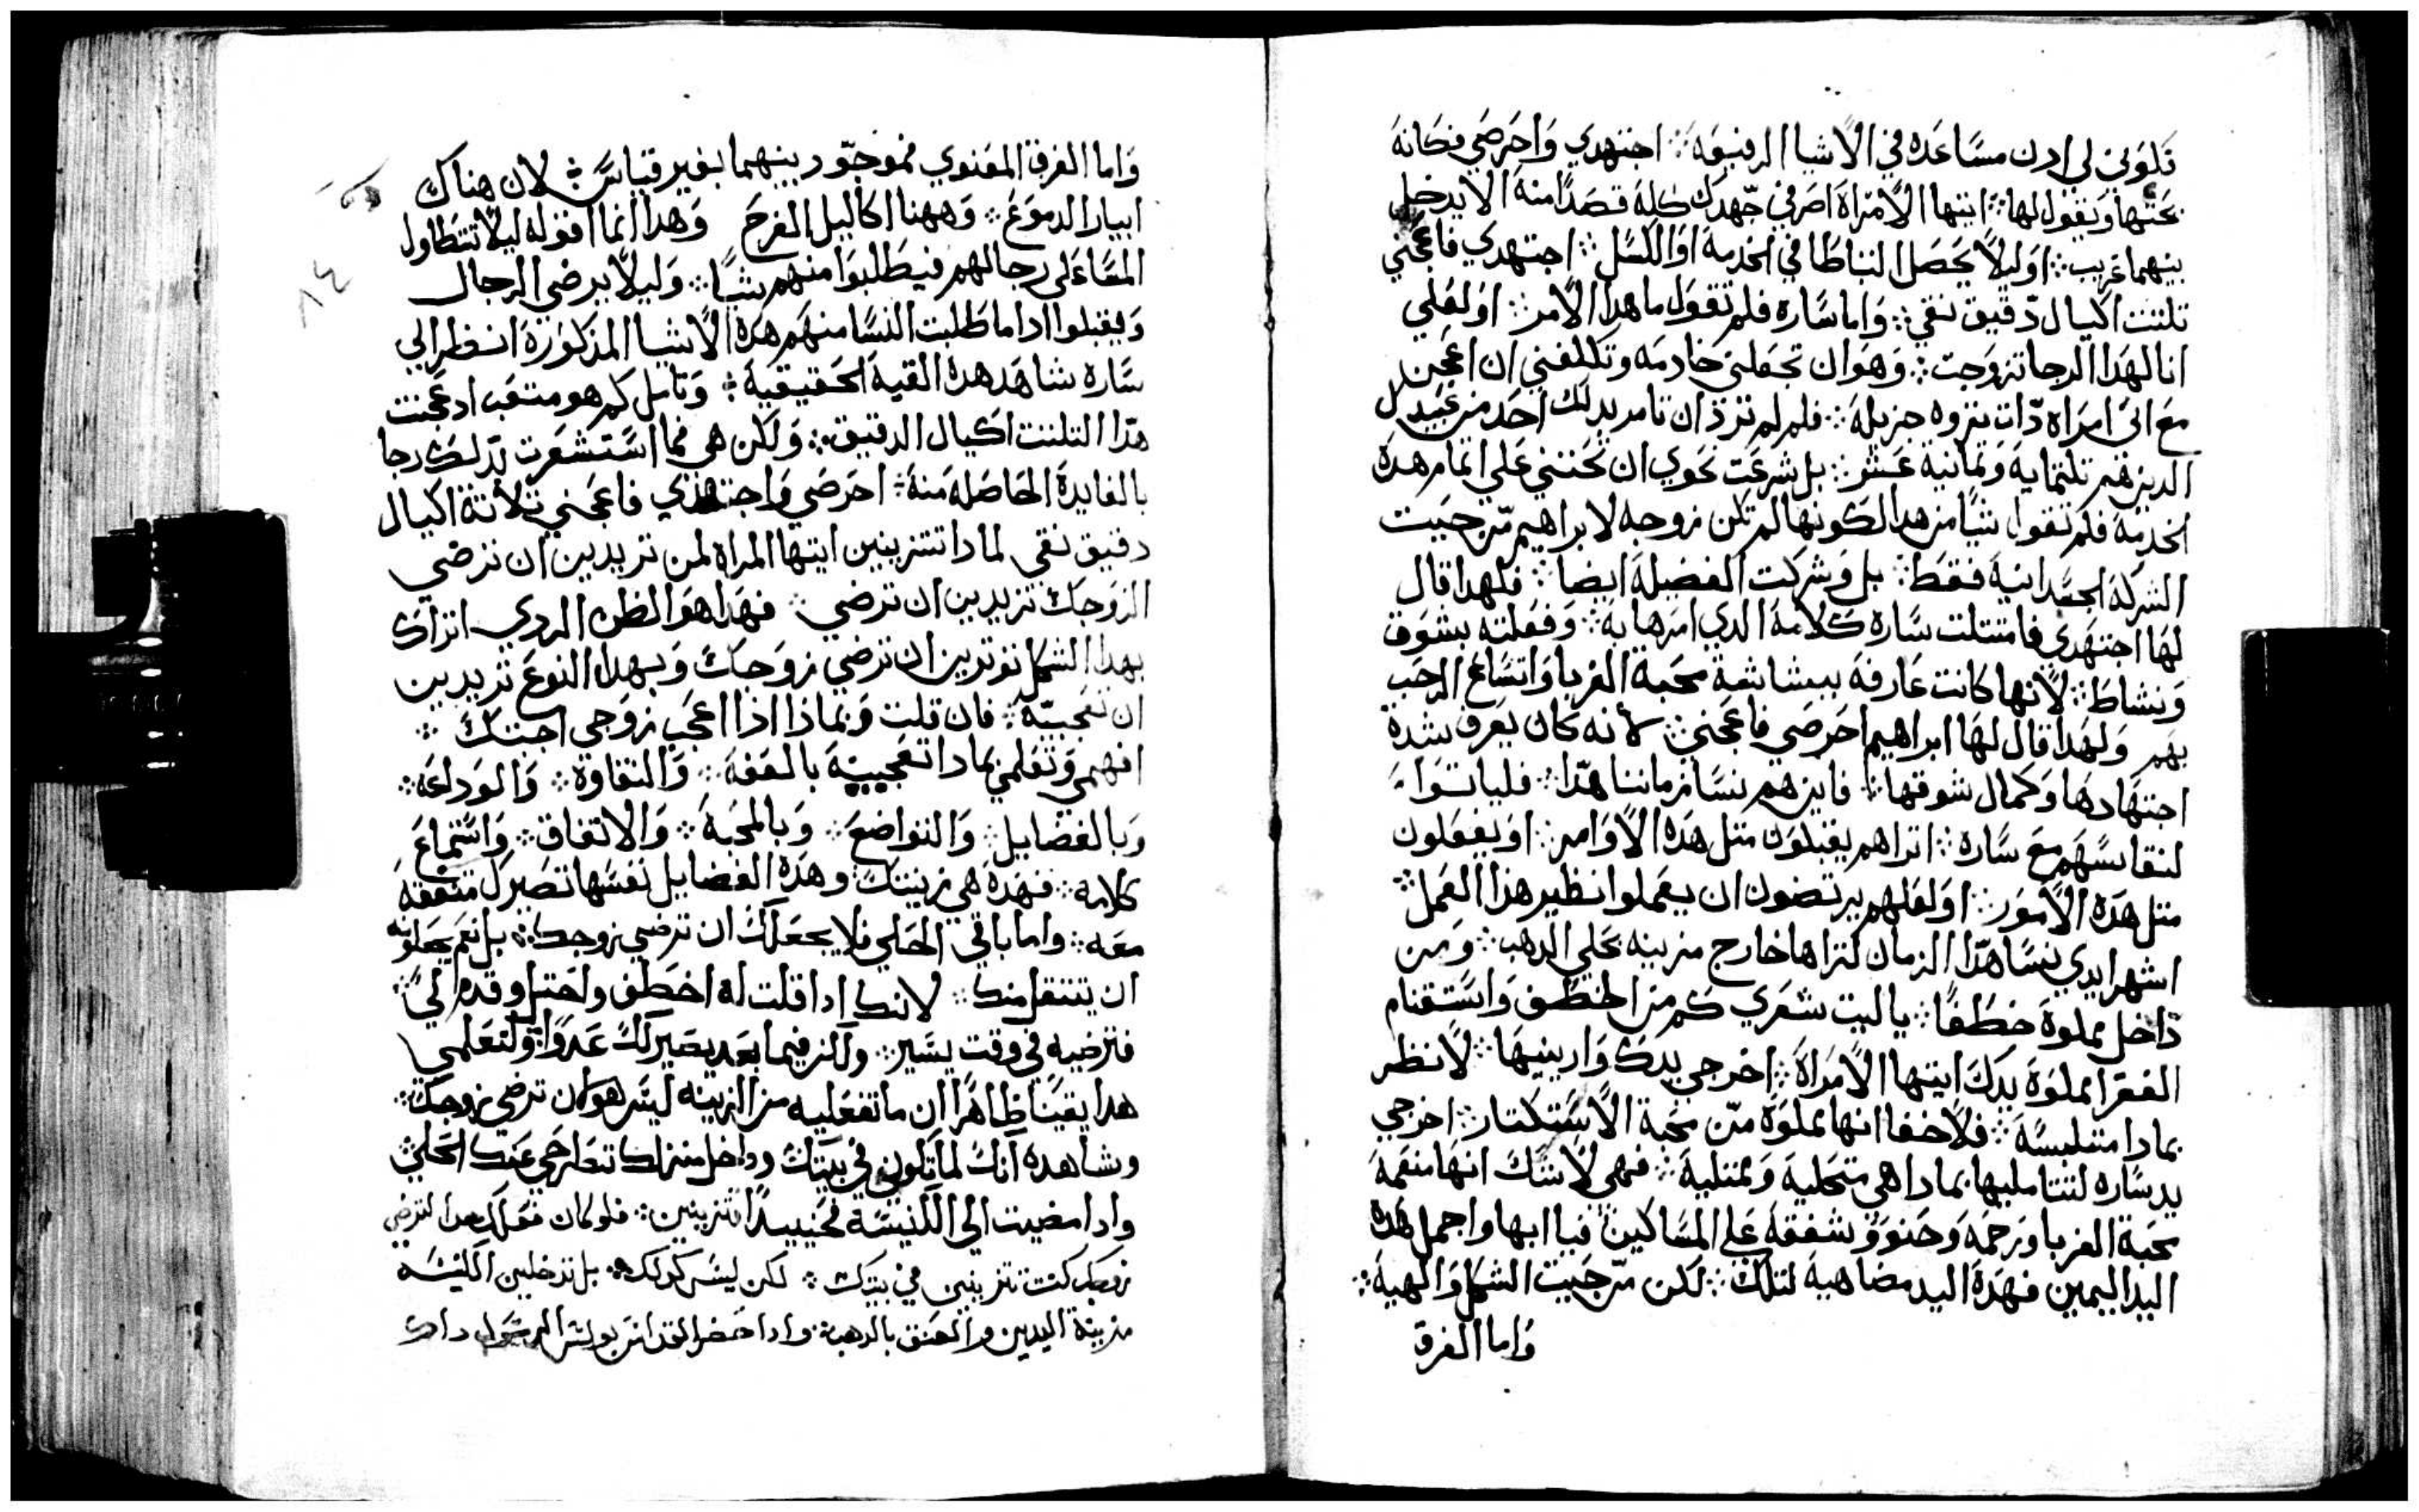 تكوني لي ادن مساعده في الاشيا الرفيعه ⁘ اجتهدي واحرصي فكانه
يحثها ويقول لها ⁘ ايتها الامراة اصرفي جهدك كله قصدًا منه الا يدخل
بينهما غريب ⁘ اوليلا يحصل التباطا في الخدمه او الكسل ⁘ اجتهدي فاعجني
تلتت اكيال دقيق نقي ⁘ واما ساره فلم تقول ما هدا الامر ⁘ او لعلي
انا لهدا الرجا تزوجت ⁘ وهو ان تجعلني خادمه وتكلفني ان اعجن
مع اني امراه دات تروه جزيله ⁘ فلم لم ترد ان تامر بدلك احد من عبيدك
الدين هم تلتمايه وتمانية عشر ⁘ بل شرعت نحوي ان تحتني علي اتمام هده
الخدمه فلم تقول شيًا من هدا لكونها لم تكن زوجه لابراهيم من جهت
الشركه الجسدانيه فقط ⁘ بل وشركت الفضيله ايضا ⁘ فلهدا قال
لها اجتهدي فامتتلت ساره كلامه الدي امرها به ⁘ وفعلته بشوق
ونشاط ⁘ لانها كانت عارفه ببشاشة محبة الغربا واتساع الرحب
بهم ولهدا قال لها ابراهيم احرصي فاعجني ⁘ لانه كان يعرف شدة
اجتهادها وكمال شوقها ⁘ فاين هم نسا زماننا هدا ⁘ فلياتوا
لنقايسهم مع ساره ⁘ اتراهم يقبلون متل هده الاوامر ⁘ او يفعلون
متل هده الامور ⁘ او لعلهم يرتضون ان يعملوا نظير هذا العمل ⁘
اشهر ايدي نسا هدا الزمان لتراها خارج مزينه بحلي الدهب ⁘ ومن
داخل مملوة خطفًا ⁘ يا ليت شعري كم من الخطف واستغنام
الفقرا مملوة يدك ايتها الامراة ⁘ اخرجي يدك وارينيها ⁘ لانظر
بمادا متلبسه ⁘ فلا خفا انها مملوة من محبة الاستكتار ⁘ اخرجي
يد ساره لنتامليها بمادا هي متحلية وممتلية ⁘ فهي لاشك انها منعمة
بمحبة الغربا ورحمه وحنو وشفقه علي المساكين فيا ابها واجمل هده
اليد اليمين فهده اليد مضاهيه لتلك ⁘ لكن من جهت الشكل والهيه ⁘
واما الفرق
واما الفرق المعنوي فموجود بينهما بغير قياس ⁘ لان هناك
ابيار الدموع ⁘ وههنا اكاليل الفرح وهدا انما اقوله ليلا تتطاول
النسا علي رجالهم فيطلبوا منهم شيًا ⁘ وليلا يرضي الرجال
ويقبلوا ادا ما طلبت النسا منهم هده الاشيا المذكورة انظر الي
ساره شاهد هده القيه الحقيقية ⁘ وتامل كم هو متعب اد عجنت
هدا التلتت اكيال الدقيق ⁘ ولكن هي فما استشعرت بدلك رجا
بالفايدة الحاصله منه ⁘ احرصي واجتهدي فاعجني تلاتة اكيال
دقيق نقي لمادا تتزينين ايتها المراه لمن تريدين ان ترضي
الزوجك تريدين ان ترضي ⁘ فهدا هو الظن الردي اتراك
بهدا الشكل توترين ان ترضي زوجك وبهدا النوع تريدين
ان تعجبيه ⁘ فان قلت وبماذا اذا اعجب زوجي اجبتك ⁘
افهمي وتعلمي بمادا تعجبيه بالعفه ⁘ والنقاوة ⁘ والوداعه ⁘
وبالفضايل ⁘ والتواضع ⁘ وبالمحبة ⁘ والاتفاق ⁘ واستماع
كلامه ⁘ فهده هي زينتك وهده الفضايل نفسها تصيرك متفقه
معه ⁘ واما باقي الحلي فلا يجعلك ان ترضي زوجك ⁘ بل نعم يجعلونه
ان يتثقل منك ⁘ لانك ادا قلت له اخطف واختل وقدم لي ⁘
فترضيه في وقت يسير ⁘ ولكن فيما بعد يصير لك عدوًا ولتعلمي
هدا يقينا ظاهرًا ان ما تفعليه من الزينه ليس هو ان ترضي زوجك ⁘
وشاهده انك لما تكوني في بيتك وداخل منزلك تطرحي عنك الحلي
وادا مضيت الي الكنيسة فحينيدًا تتزينين ⁘ فلو كان فعلك هدا لترضي
زوجك كنت تتزينين في بيتك ⁘ لكن ليس كدلك ⁘ بل تدخلين الكنيسه
مزينة اليدين والعنق بالدهب ⁘ وادا حضر القديس بولس الرسول داك